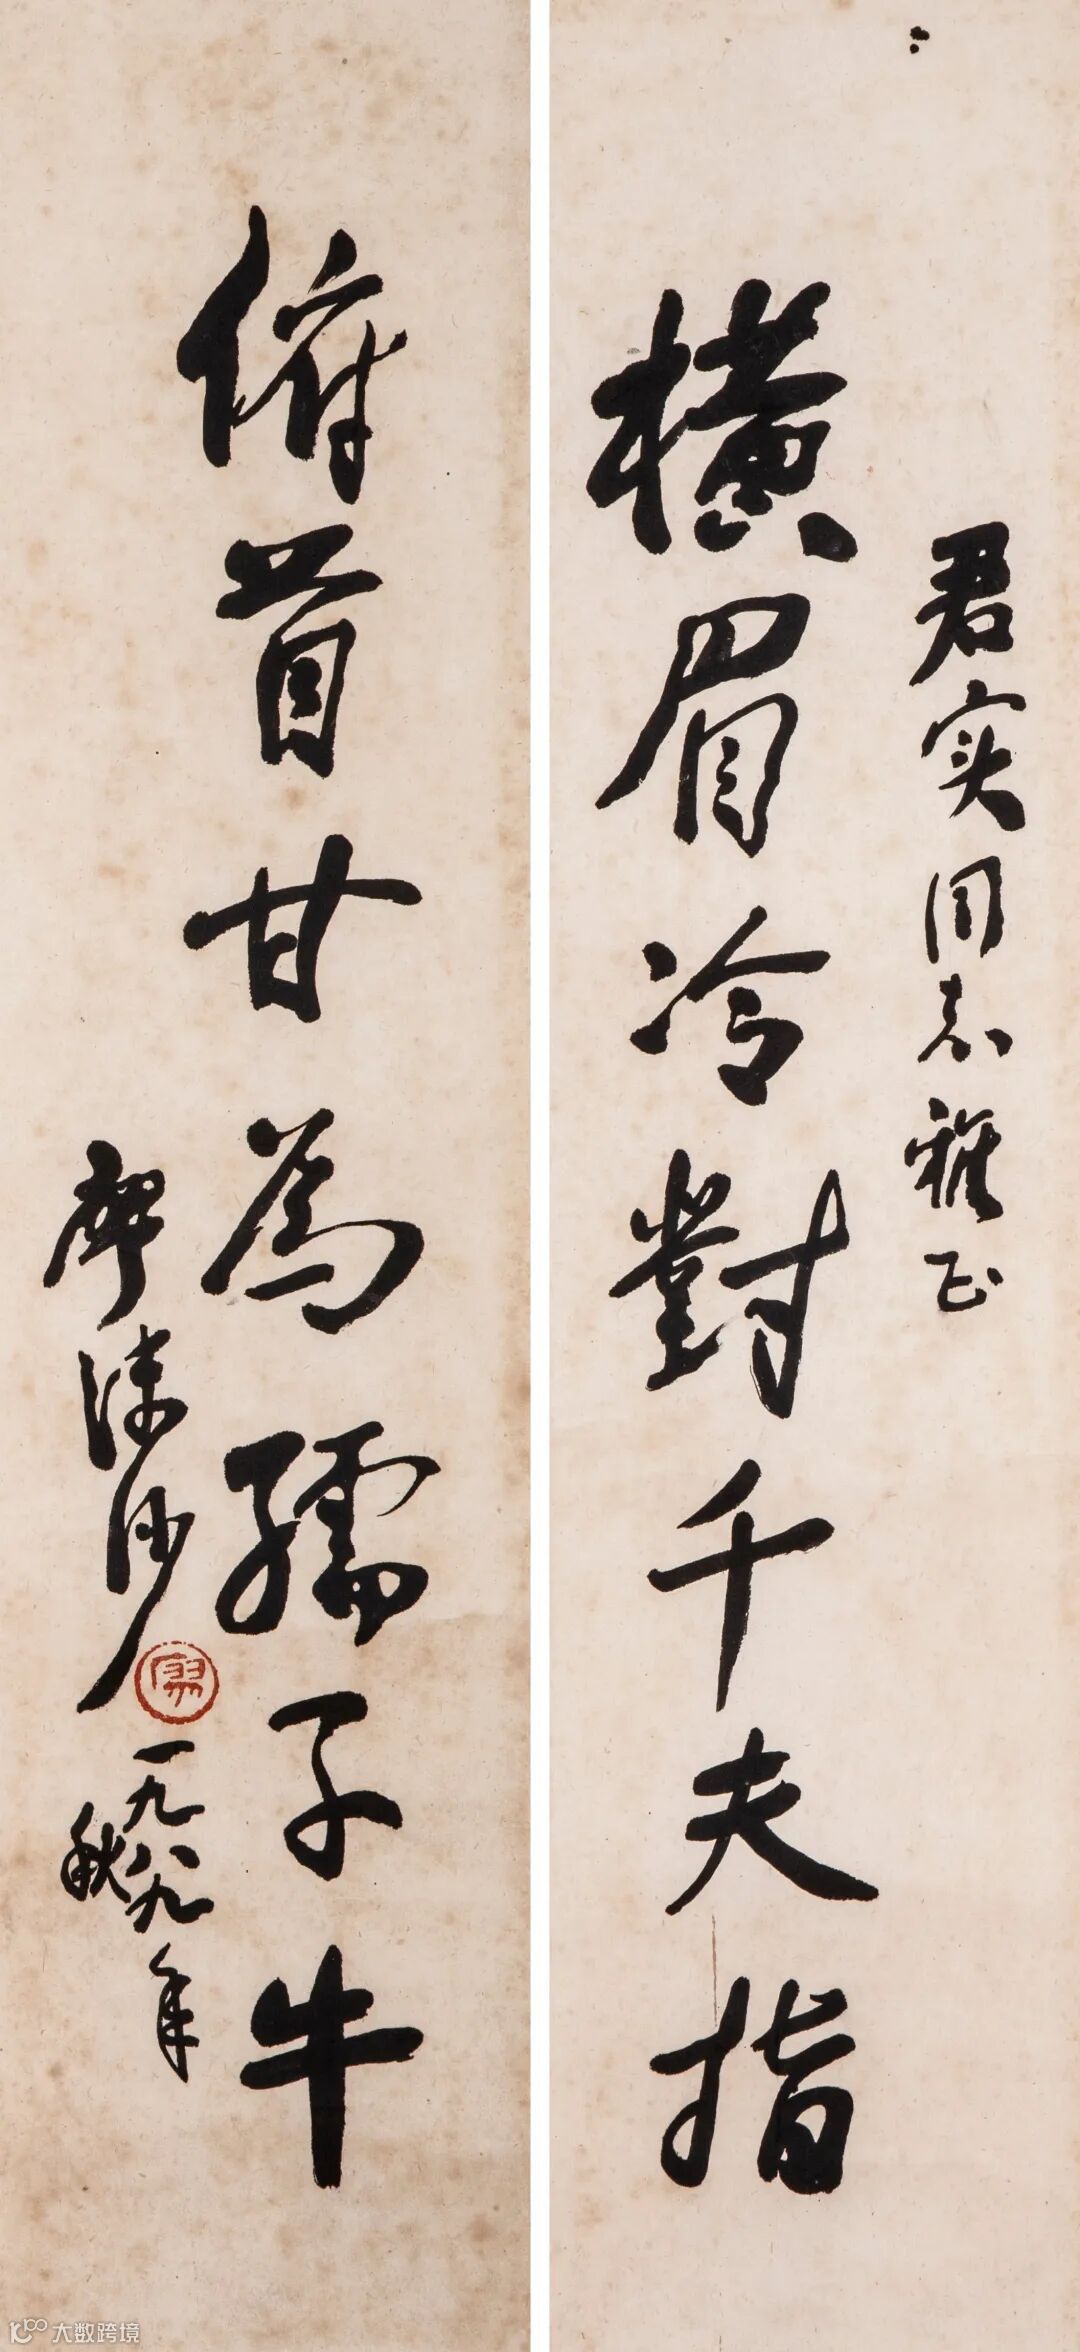 君实同志雅正
橫眉冷對千夫指
俯首甘為孺子牛
廖沫沙
廖
一九八九年
秋
大数跨境